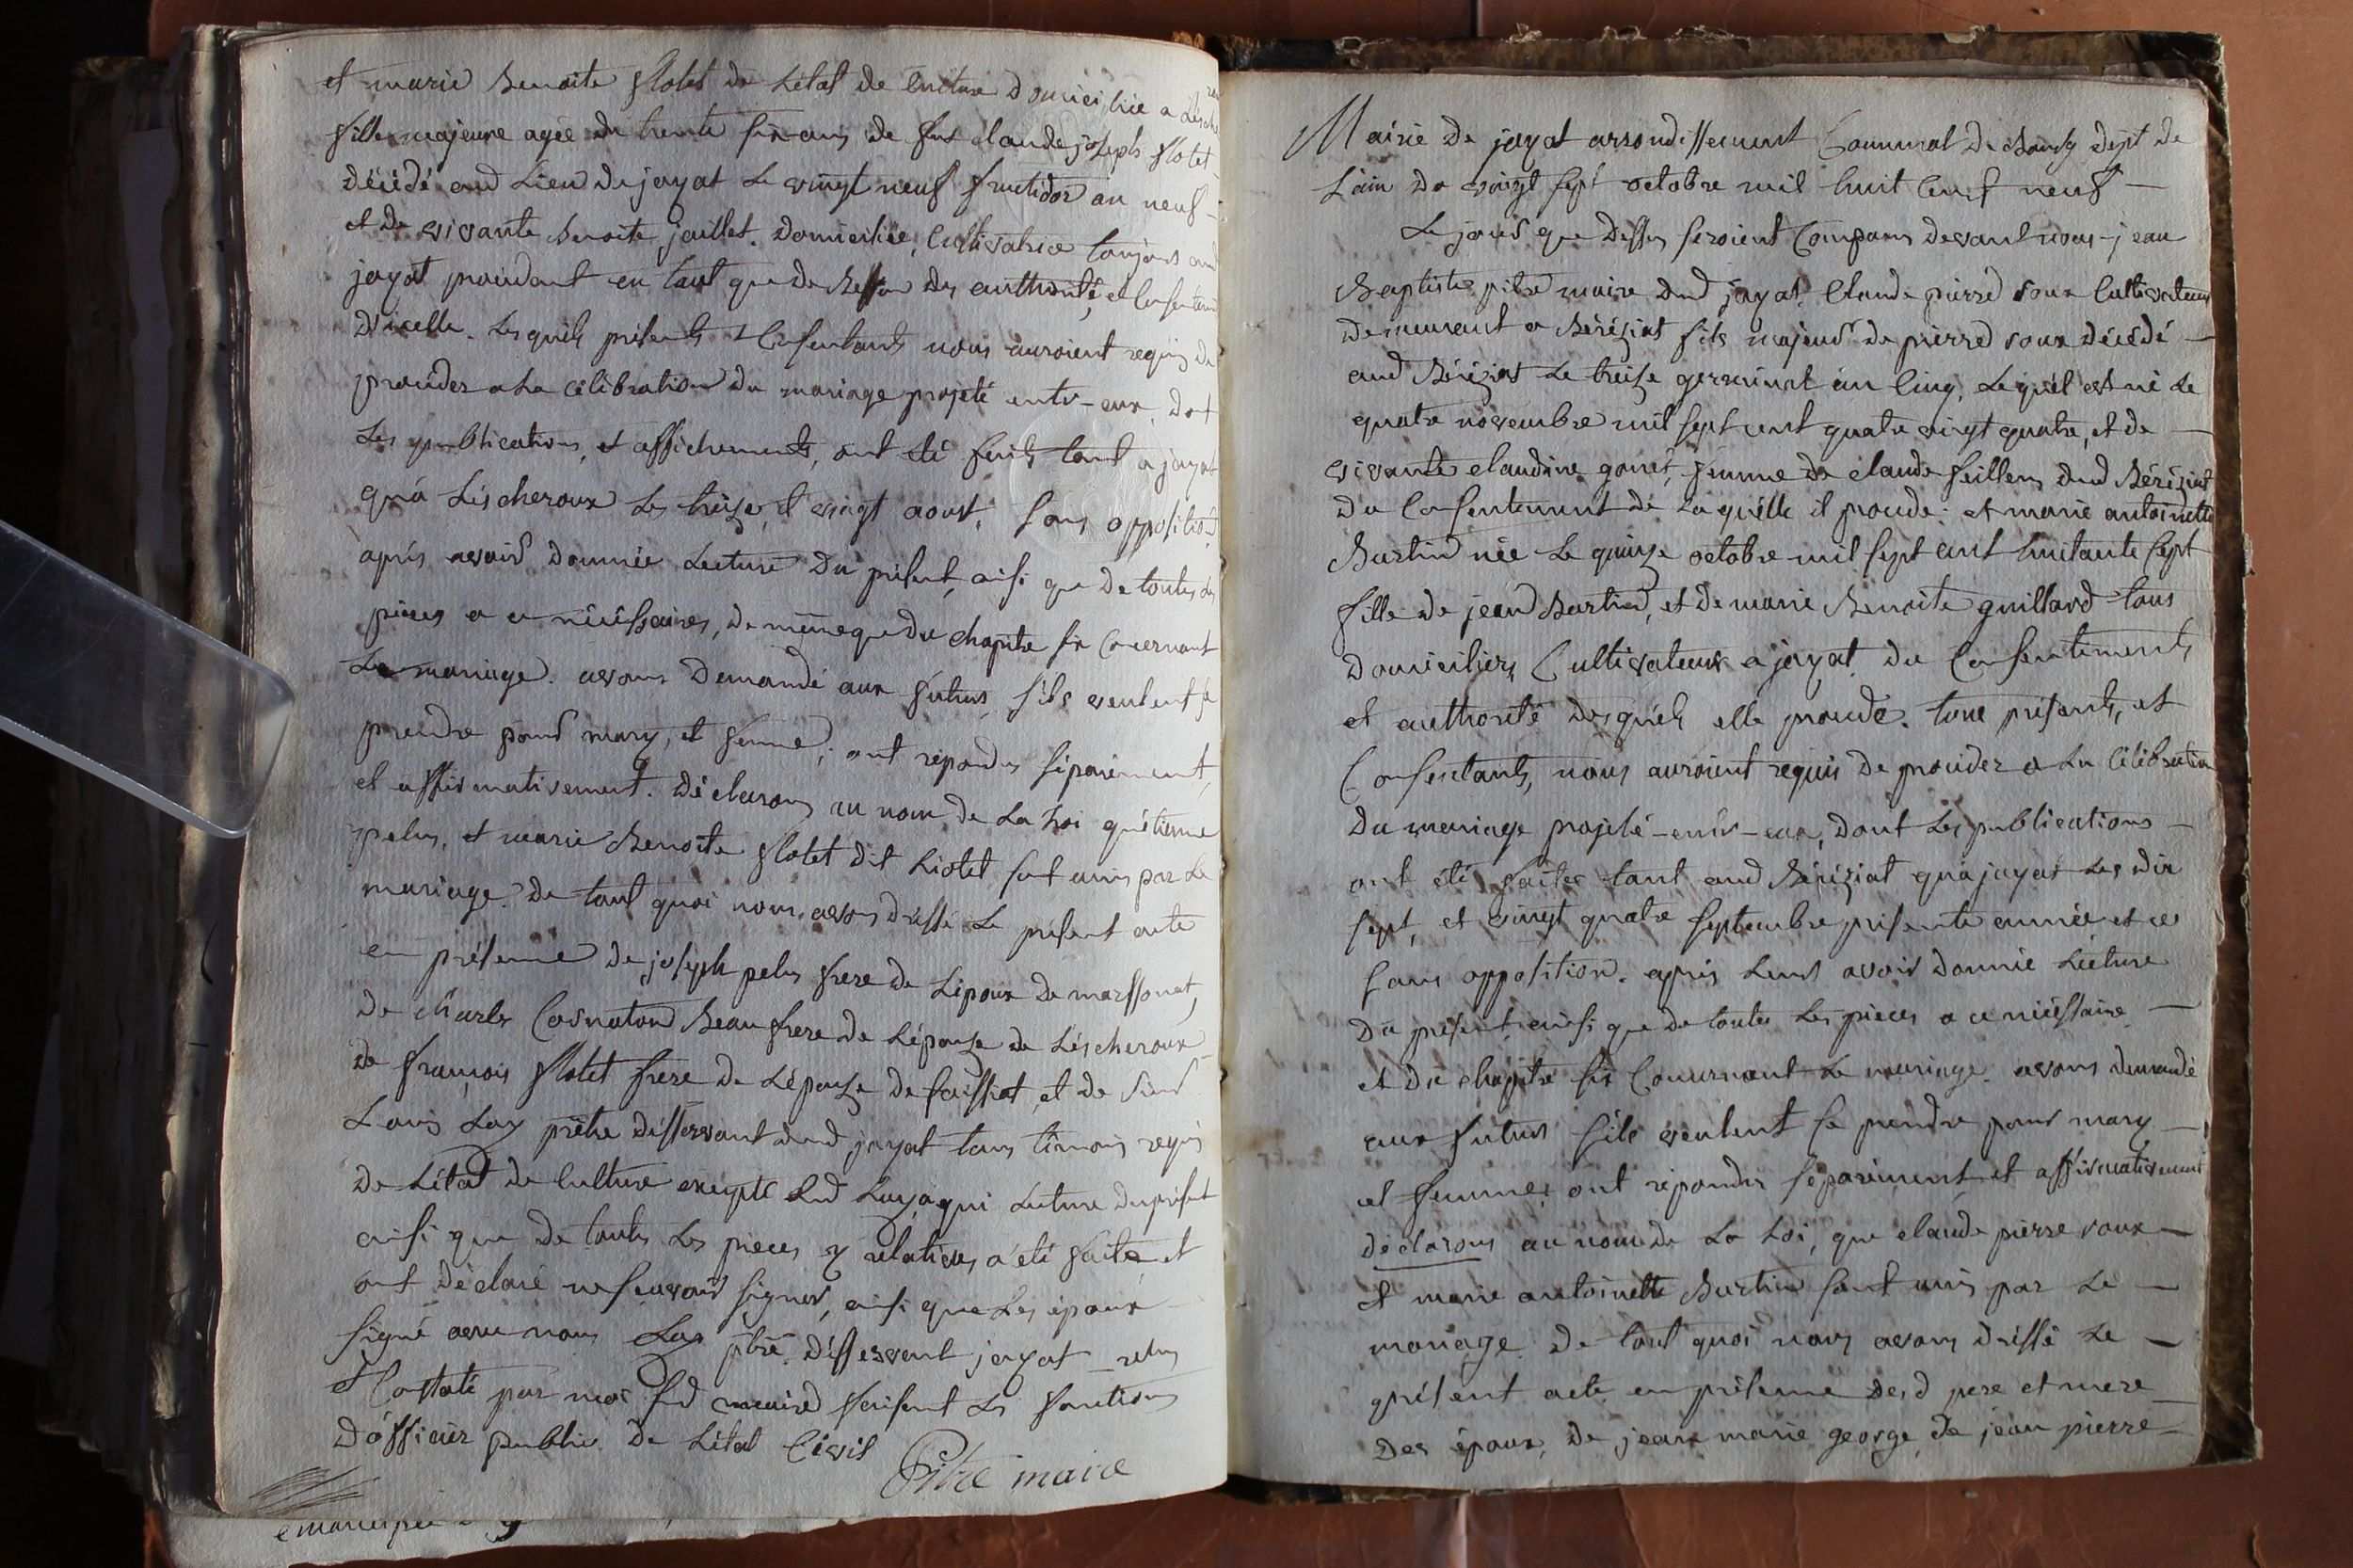 et marie Benoite flotet de Létat de Culture domiciliée a
fille majeure agée de trente six ans de feu claude joseph flotet
décédé aud Lieu de jayat Le vingt neuf fructidor an neuf
et de vivante Benoite jaillet. domiciliée, Cultivatrice toujours aud
jayat procédant en tant que de Besoin des authorité, et
d'icelle. Lesquels présents et Consentants nous auroient requis de
procéder a La célébration du mariage projeté entr-eux, dont
Les publications, et affichements, ont été faits tant a jayat
qu'a Léscheroux Le treize, et vingt aoust, sans opposition
aprés avoir donnée Lecture du présent, ainsi que de toutes Les
piéces a ce nécéssaires, de même que du chapitre six Concernant
Le mariage. avons demandé aux futurs, s'ils veulent se
prendre pour mary, et femme; ont repondus séparément,
et affirmativement. déclarons au nom de La Loi qu'étienne
pelus, et marie Benoite flotet dit Liotet sont unis par Le
mariage. de tout quoi nous avons dréssé Le présent acte
en présence de joseph pelus frere de Lépoux de marssonat,
de charles Cornaton Beaufrere de Lépouse de Léscheroux
de françois flotet frere de Lépouse de foissiat, et de sieur
Louis Lay prêtre désservant dud jayat tous témoins requis
de Létat de Culture excepté Led Lay, a qui Lecture du présent
ainsi que de toutes Les pieces y relatives a été faite et
ont déclaré ne scavoir signer, ainsi que Les époux
signé avec nous Lay ptre. désservant jayat
et Constaté par moi sd maire faisant Les fonctions
d'officier public de Létat Civil
Pitre maire
Mairie de jayat arrondissement Communal de Bourg dept de
L'ain du vingt sept octobre mil huit Cent neuf —
Le jour que dessus seroient Comparus devant nous jean
Baptiste pitre maire dud jayat, Claude pierre roux Cultivateur
demeurant a Béréziat fils majeur de pierre roux décédé —
aud Béréziat Le treize germinal an Cinq, Lequel est né Le
quatre novembre mil sept cent quatre vingt quatre, et de —
vivante claudine femme de claude feillens dud Béréziat
du Consentement de Laquelle il procede: et marie antoinette
Burtin née Le quinze octobre mil sept cent huitante sept
fille de jean Burtin, et de marie Benoite guillard tous
domiciliers Cultivateurs a jayat du Consentement
et authorité desquels elle procede. tous présents, et
Consentants, nous auroient requis de procéder a La Célébration
du mariage projété-entr-eux, dont Les publications —
ont été faites tant aud Béréziat qu'a jayat Les dix
sept, et vingt quatre septembre présente année et ce
sans opposition. aprés Leur avoir donnée Lécture
du présent, ainsi que de toutes Les pieces a ce nécéssaire —
et du chapitre six Concernant Le mariage. avons demandé
aux futurs s'ils veulent se prendre pour mary —
et femme; ont répondus séparément et affirmativement
déclarons au nom de La Loi, que claude pierre roux —
et marie antoinette Burtin sont unis par Le —
mariage. de tout quoi nous avons dréssé Le —
présent acte en présence desd pere et mere —
des époux, de jean marie george, de jean pierre —